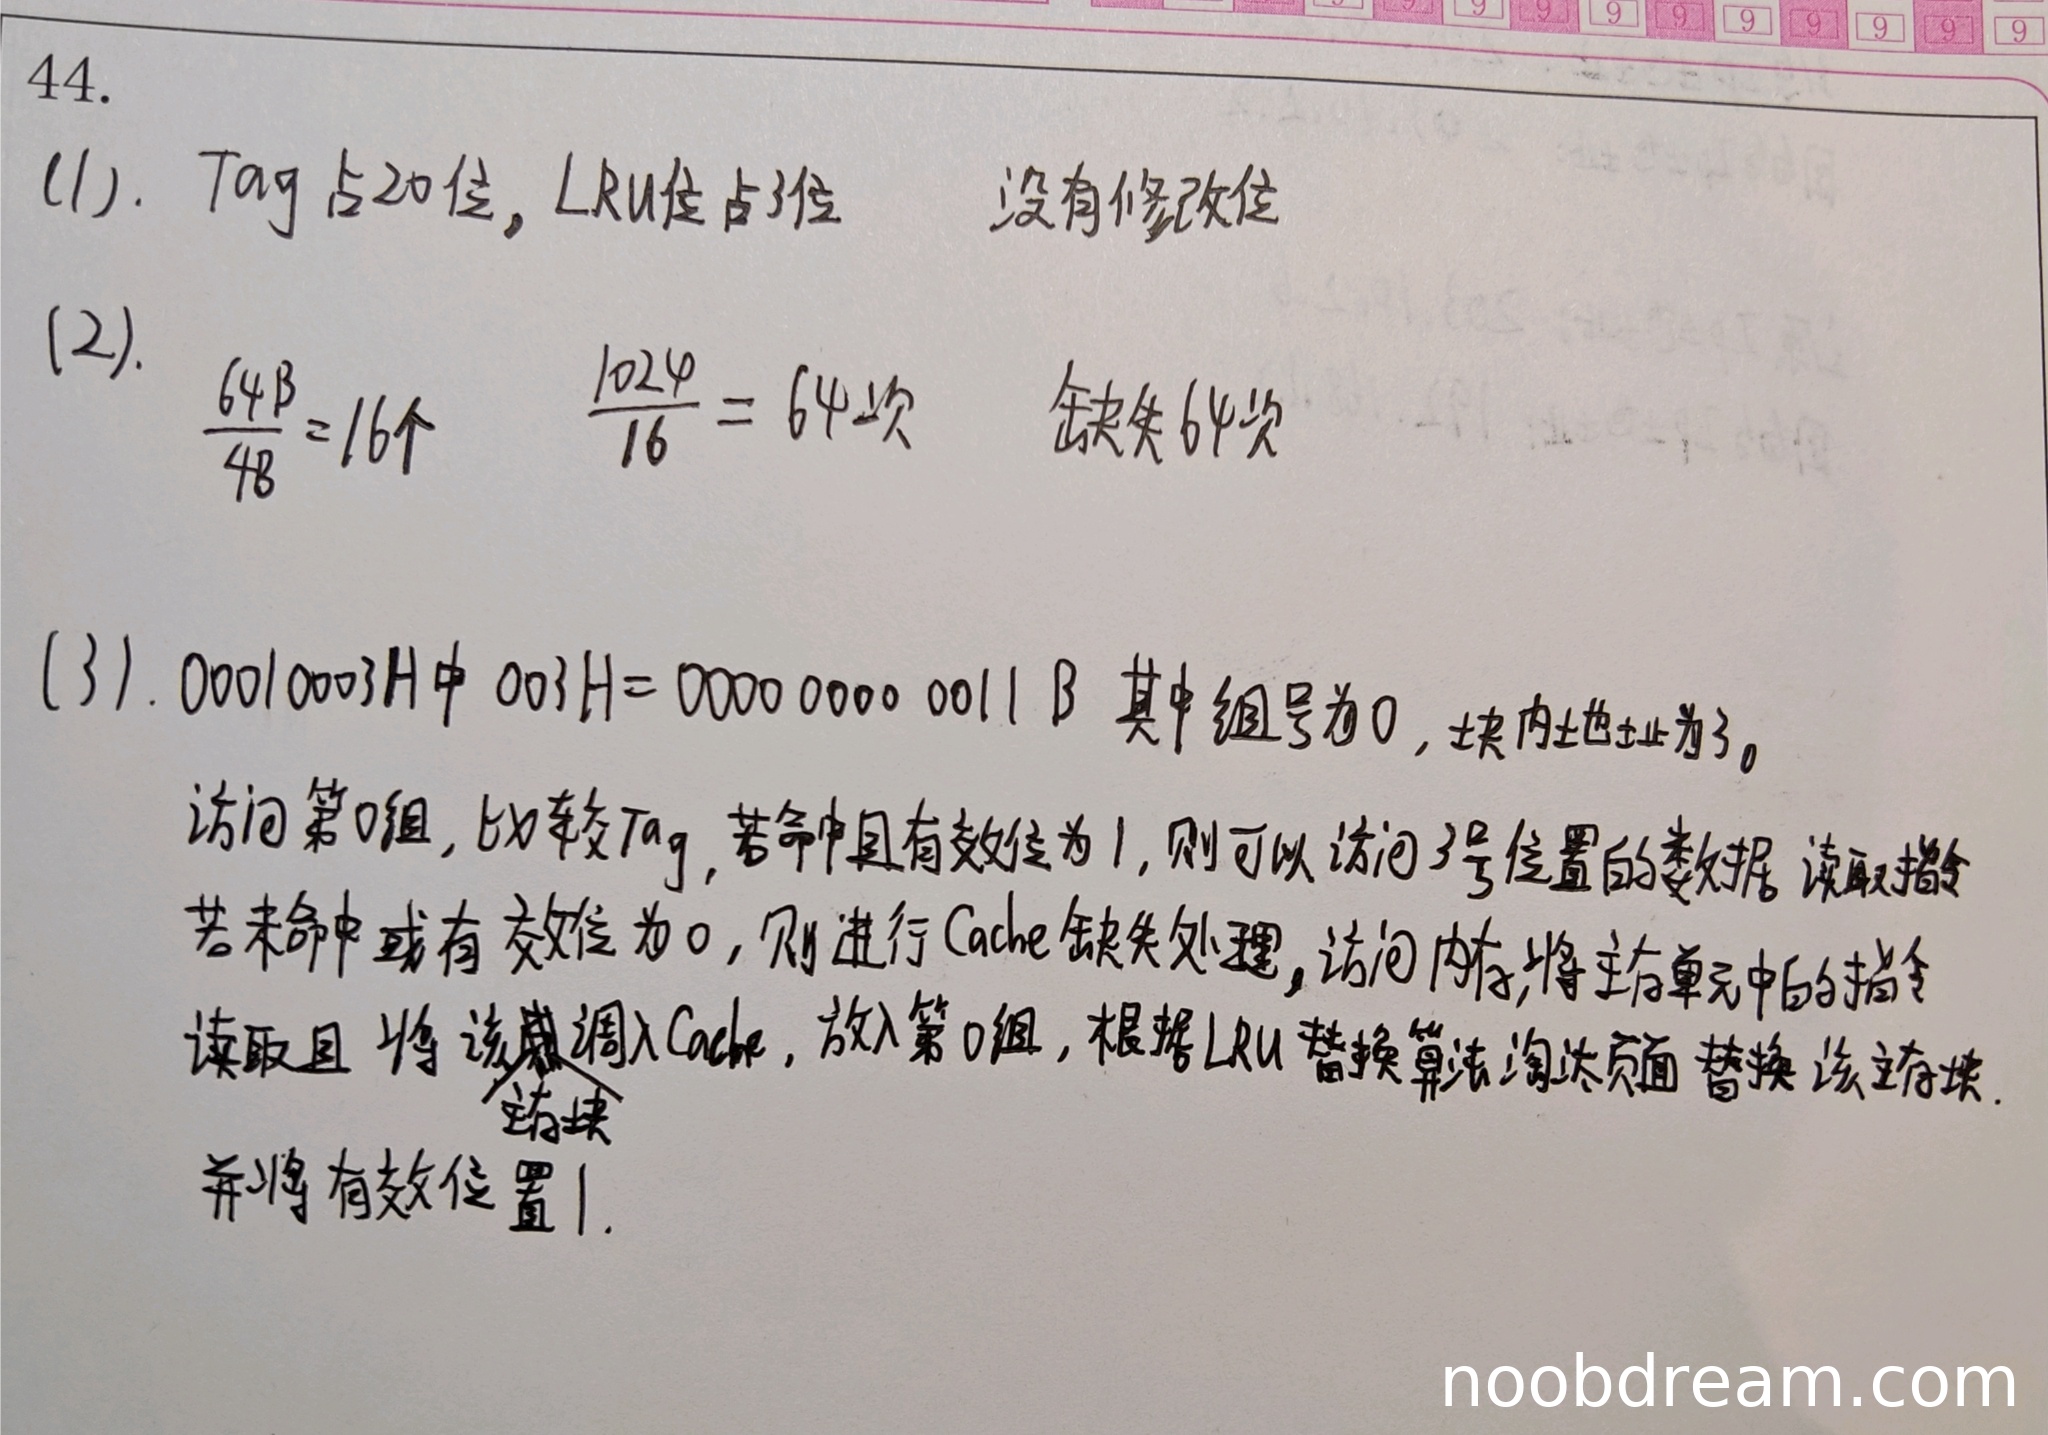 9 9 9 9 9 9 9 9
44.
(1). Tag占20位，LRU位占3位 没有修改位
(2). 64B/4B=16个 1024/16=64次 缺失64次
(3). 00010003H中 003H=0000 0000 0011 B 其中组号为0，块内地址为3。
访问第0组，比较Tag，若命中且有效位为1，则可以访问3号位置的数据 读取指令
若未命中或有效位为0，则进行Cache缺失处理，访问内存，将主存单元中的指令
读取且将该主存块调入Cache，放入第0组，根据LRU替换算法淘汰页面替换该主存块.
并将有效位置1.
noobdream.com